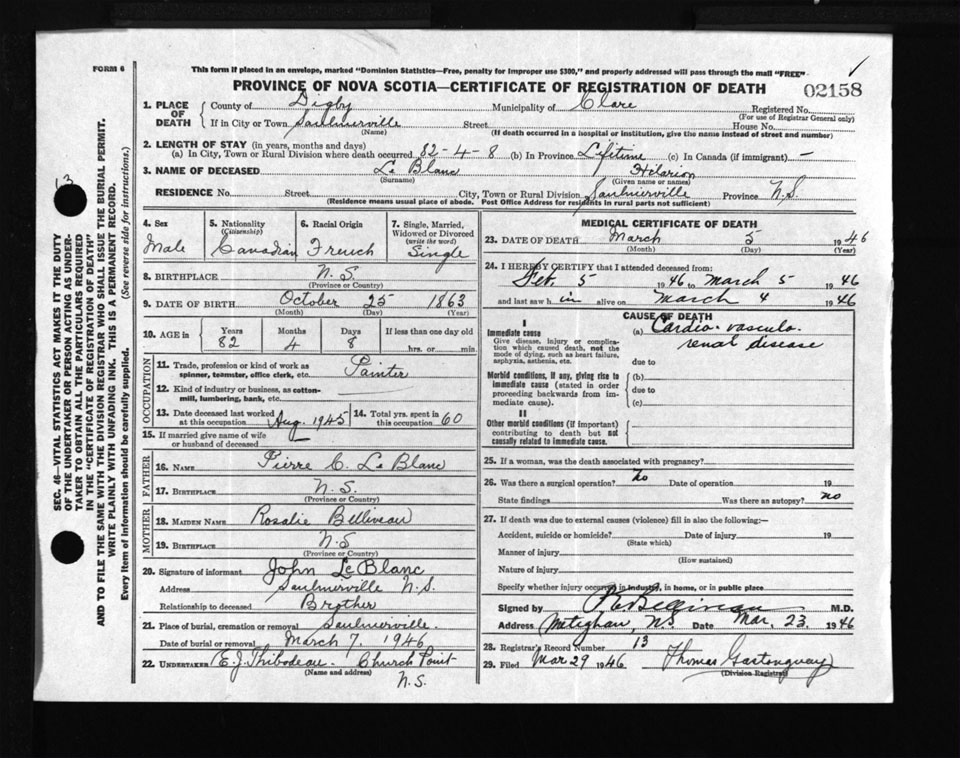 FORM 6
This form if placed in an envelope, marked "Dominion Statistics—Free, penalty for improper use $300," and properly addressed will pass through the mail "FREE"
PROVINCE OF NOVA SCOTIA—CERTIFICATE OF REGISTRATION OF DEATH
02158
1. PLACE OF DEATH { County of Digby Municipality of Clare Registered No.
(For use of Registrar General only)
If in City or Town Saulnierville Street House No.
(Name) (If death occurred in a hospital or institution, give the name instead of street and number)
2. LENGTH OF STAY (in years, months and days)
(a) In City, Town or Rural Division where death occurred 82-4-8 (b) In Province Lifetime (c) In Canada (if immigrant) —
3. NAME OF DECEASED Le Blanc Hilarion
(Surname) (Given name or names)
RESIDENCE No. Street City, Town or Rural Division Saulnierville Province N.S.
(Residence means usual place of abode. Post Office Address for residents in rural parts not sufficient)
4. Sex Male
5. Nationality (Citizenship) Canadian
6. Racial Origin French
7. Single, Married, Widowed or Divorced (write the word) Single
8. BIRTHPLACE N.S.
(Province or Country)
9. DATE OF BIRTH October 25 1863
(Month) (Day) (Year)
10. AGE in Years 82 Months 4 Days 8 If less than one day old hrs. or min.
OCCUPATION
11. Trade, profession or kind of work as spinner, teamster, office clerk, etc. Painter
12. Kind of industry or business, as cotton-mill, lumbering, bank, etc.
13. Date deceased last worked at this occupation Aug. 1945
14. Total yrs. spent in this occupation 60
15. If married give name of wife or husband of deceased
FATHER
16. NAME Pierre C. Le Blanc
17. BIRTHPLACE N.S.
(Province or Country)
MOTHER
18. MAIDEN NAME Rosalie Belliveau
19. BIRTHPLACE N.S
(Province or Country)
20. Signature of informant John LeBlanc
Address Saulnierville N.S.
Relationship to deceased Brother
21. Place of burial, cremation or removal Saulnierville.
Date of burial or removal March 7, 1946
22. UNDERTAKER E.J. Thibodeau Church Point
(Name and address) N.S.
MEDICAL CERTIFICATE OF DEATH
23. DATE OF DEATH March 5 1946
(Month) (Day) (Year)
24. I HEREBY CERTIFY that I attended deceased from:
Feb. 5 1946 to March 5 1946
and last saw h im alive on March 4 1946
CAUSE OF DEATH
I
Immediate cause
Give disease, injury or complication which caused death, not the mode of dying, such as heart failure, asphyxia, asthenia, etc.
(a) Cardio-vasculo-
renal disease
due to
Morbid conditions, if any, giving rise to immediate cause (stated in order proceeding backwards from immediate cause).
(b)
due to
(c)
II
Other morbid conditions (if important) contributing to death but not causally related to immediate cause.
25. If a woman, was the death associated with pregnancy?
26. Was there a surgical operation? No Date of operation 19
State findings Was there an autopsy? no
27. If death was due to external causes (violence) fill in also the following:—
Accident, suicide or homicide? Date of injury 19
(State which)
Manner of injury
(How sustained)
Nature of injury
Specify whether injury occurred in industry, in home, or in public place
Signed by Belliveau M.D.
Address Meteghan N.S. Date Mar. 23. 1946
28. Registrar's Record Number 13
29. Filed Mar 29 1946 Thomas Gastonguay
(Division Registrar)
SEC. 46—VITAL STATISTICS ACT MAKES IT THE DUTY
OF THE UNDERTAKER OR PERSON ACTING AS UNDER-
TAKER TO OBTAIN ALL THE PARTICULARS REQUIRED
IN THE "CERTIFICATE OF REGISTRATION OF DEATH"
AND TO FILE THE SAME WITH THE DIVISION REGISTRAR WHO SHALL ISSUE THE BURIAL PERMIT.
WRITE PLAINLY WITH UNFADING INK. THIS IS A PERMANENT RECORD.
Every item of information should be carefully supplied. (See reverse side for instructions.)